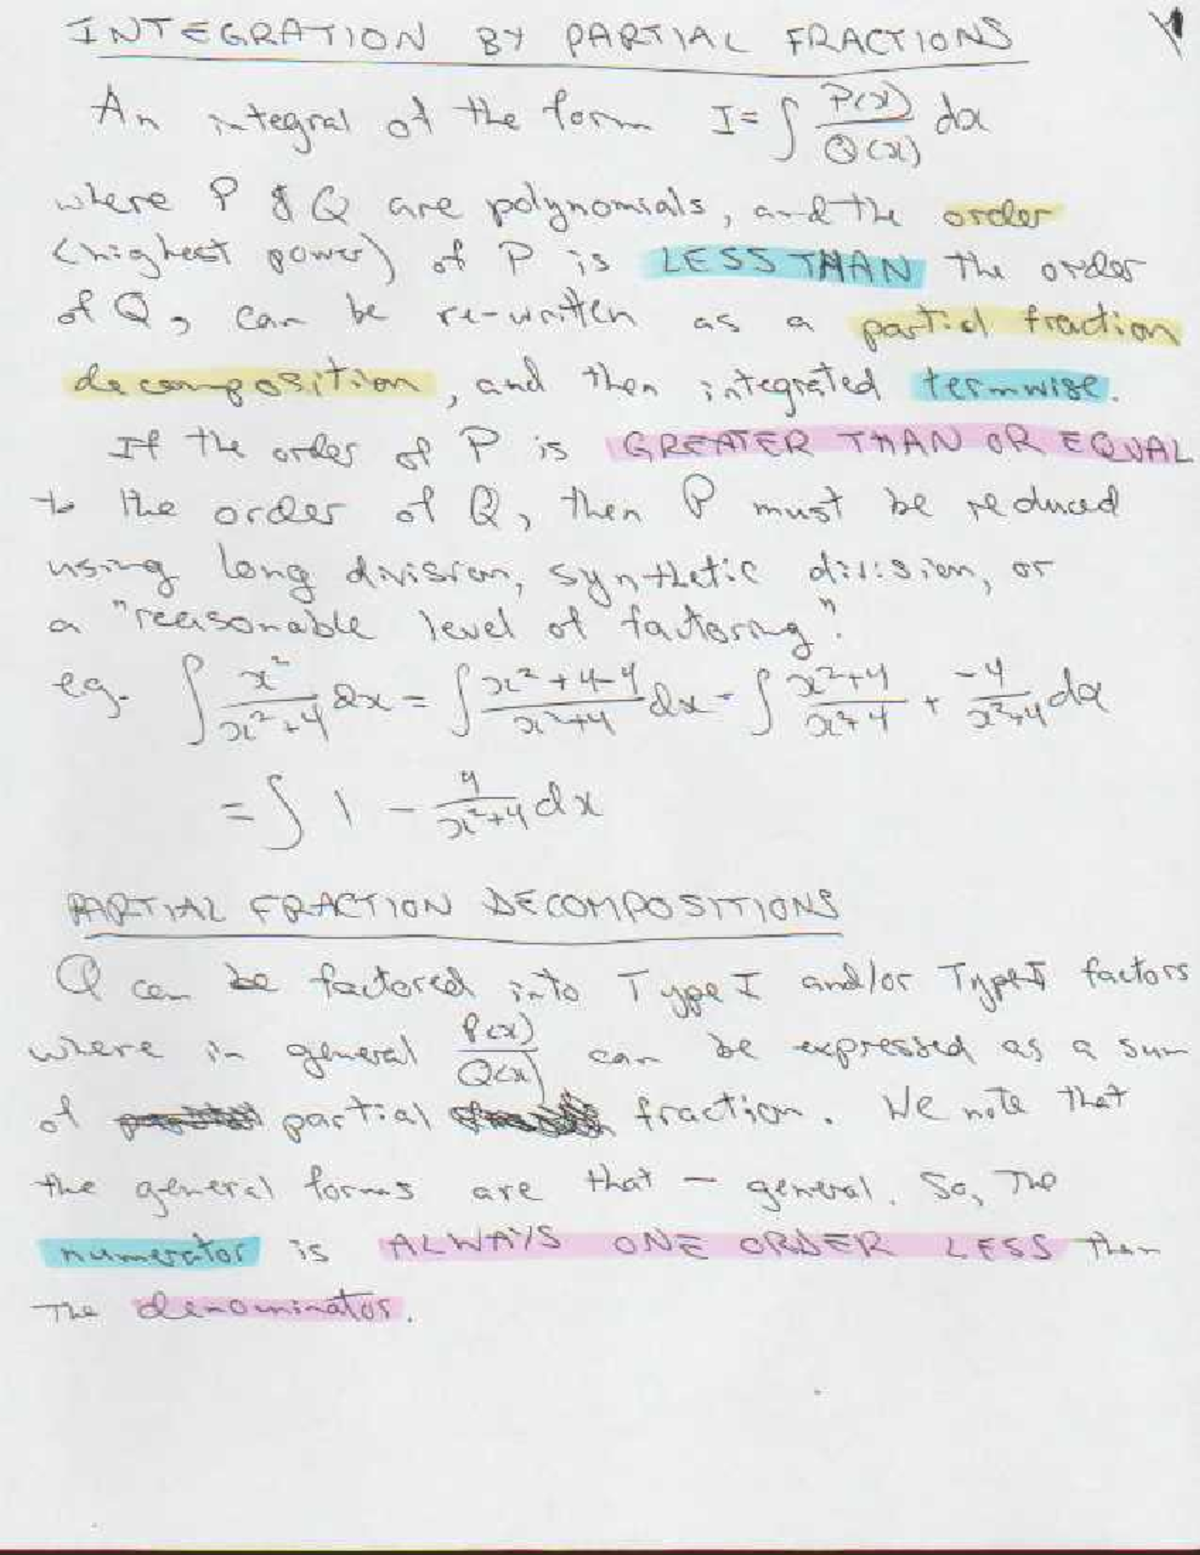 INTEGRATION BY PARTIAL FRACTIONS
An integral of the form I = ∫ P(x)/Q(x) dx
where P & Q are polynomials, and the order
(highest power) of P is LESS THAN the order
of Q, can be re-written as a partial fraction
decomposition, and then integrated termwise.
If the order of P is GREATER THAN OR EQUAL
to the order of Q, then P must be reduced
using long division, synthetic division, or
a "reasonable level of factoring".
eg. ∫ x²/(x²+4) dx = ∫ (x²+4-4)/(x²+4) dx = ∫ (x²+4)/(x²+4) + -4/(x²+4) dx
= ∫ 1 - 4/(x²+4) dx
PARTIAL FRACTION DECOMPOSITIONS
Q can be factored into Type I and/or Type II factors
where in general P(x)/Q(x) can be expressed as a sum
of partial fraction. We note that
the general forms are that - general. So, the
numerator is ALWAYS ONE ORDER LESS than
the denominator.